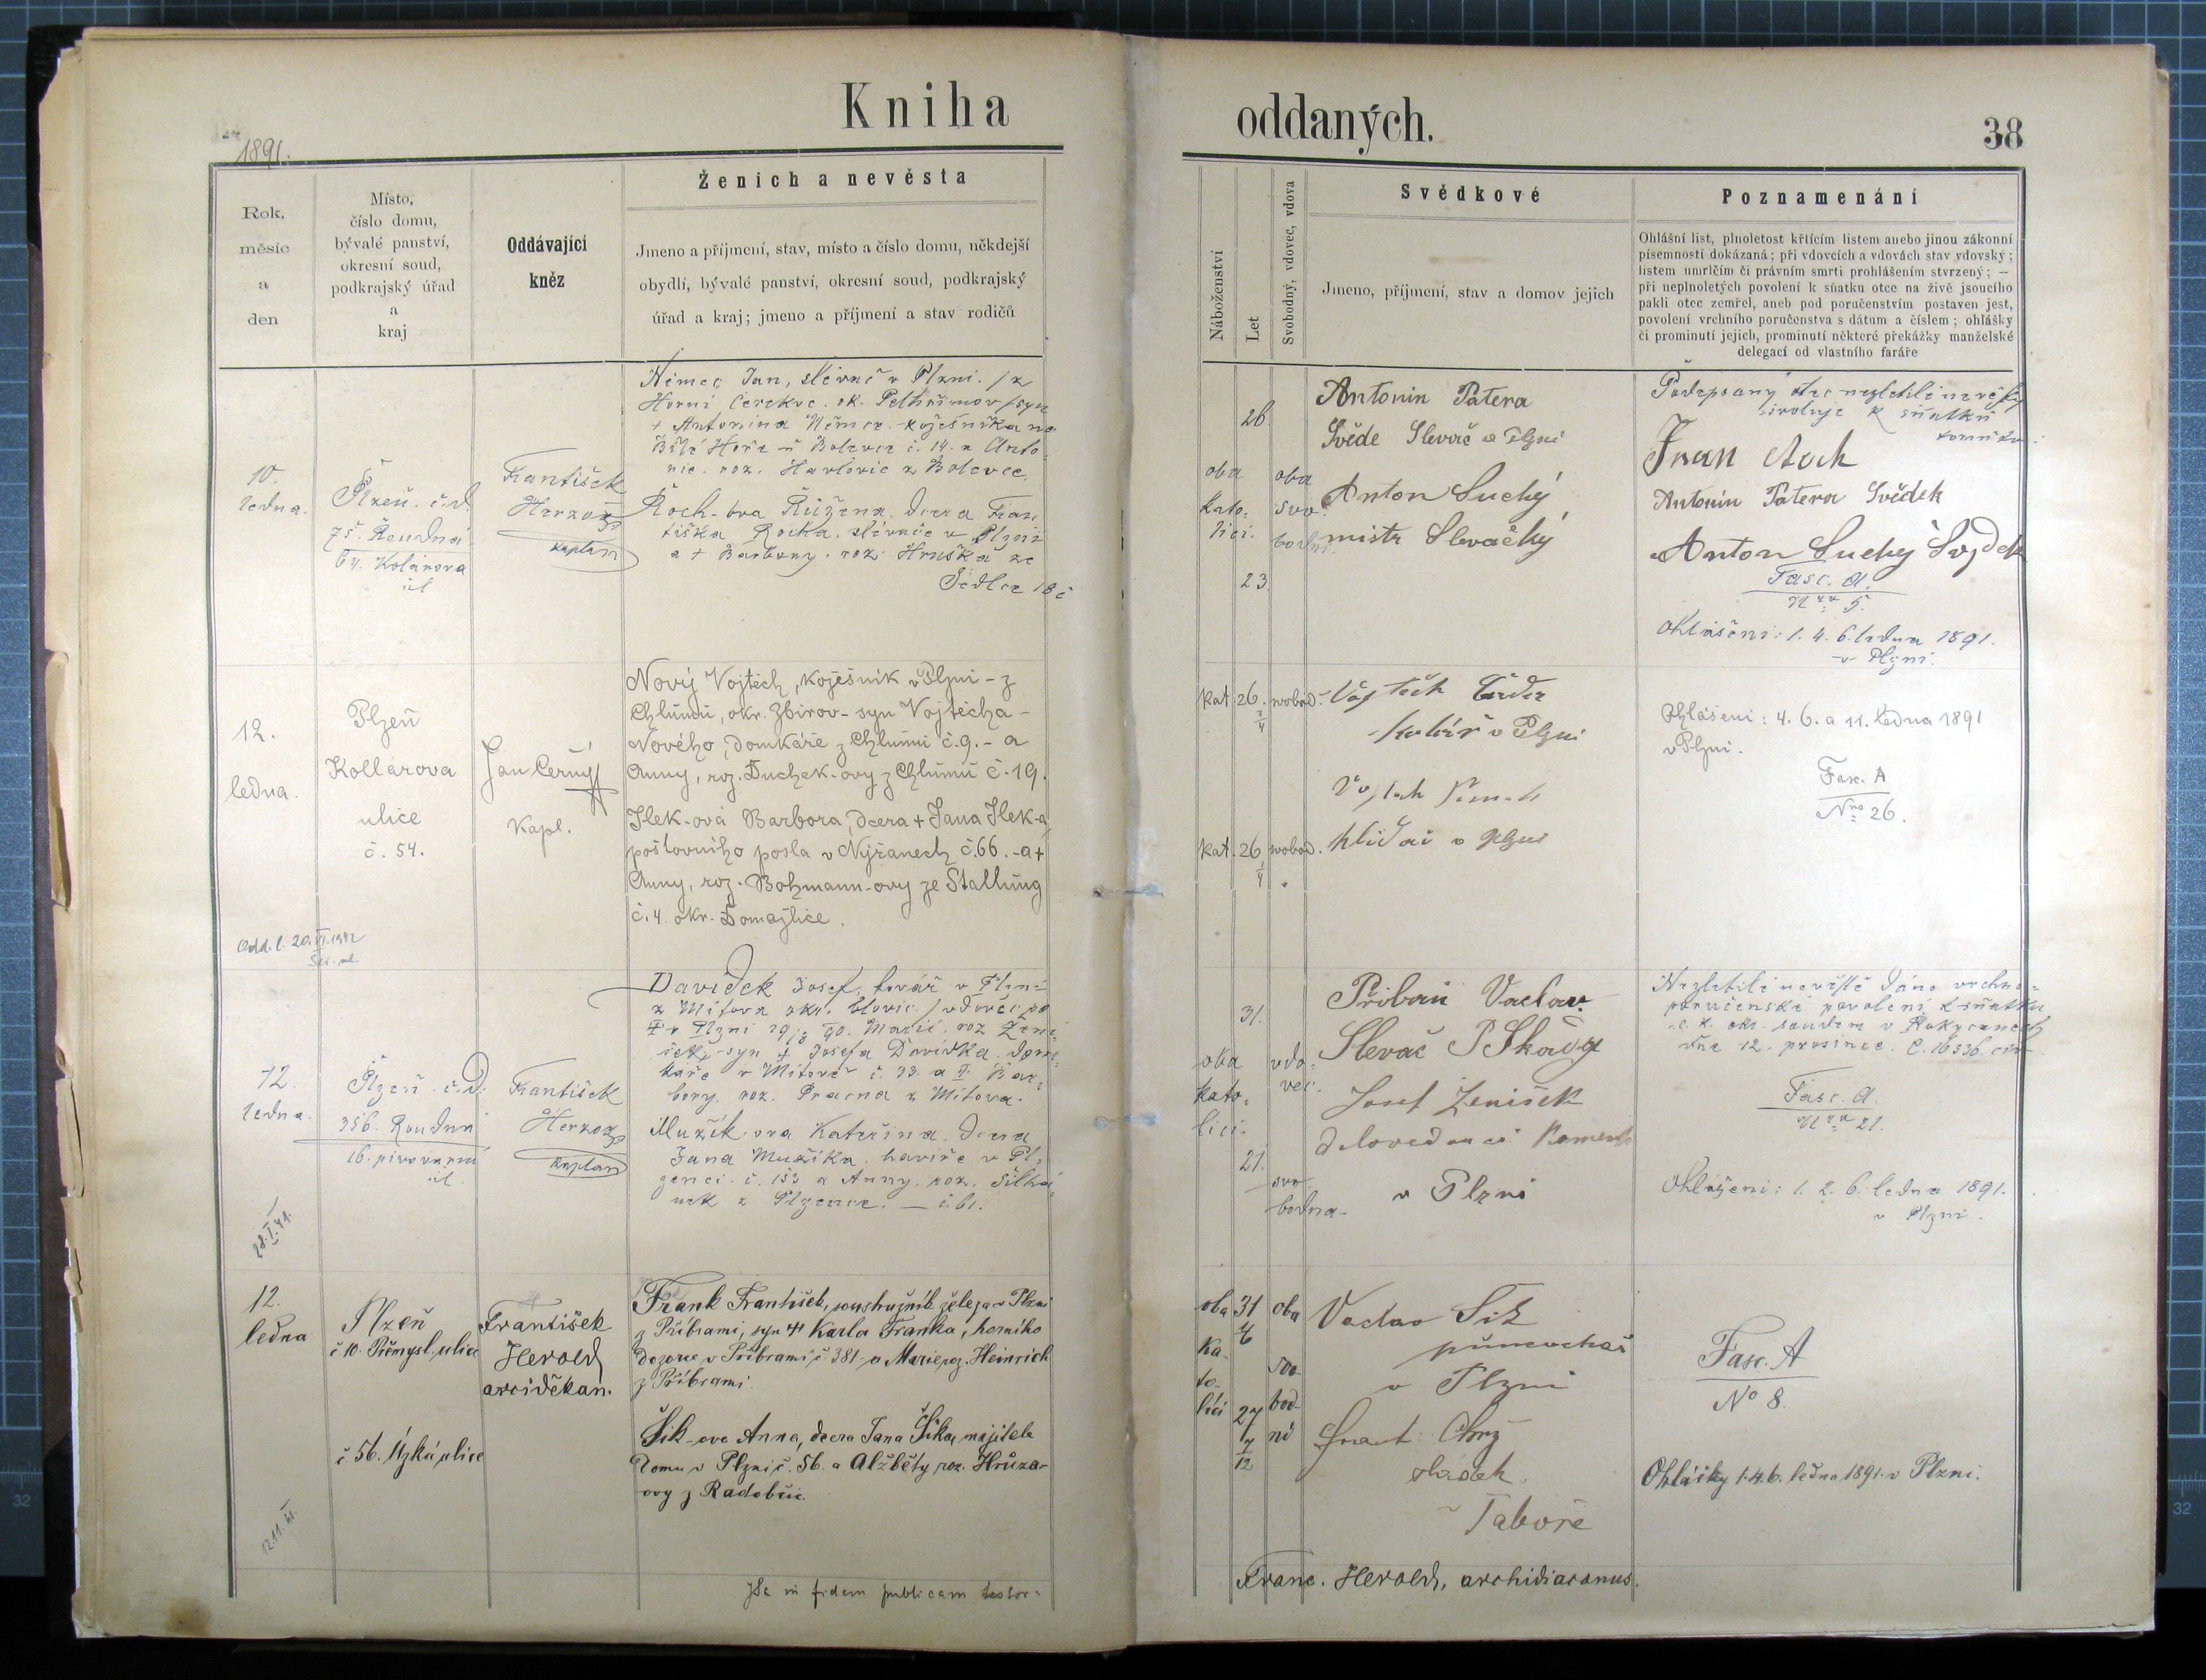 Kniha
oddaných.
38
1891.
Rok,
měsíc
a
den
Místo,
číslo domu,
bývalé panství,
okresní soud,
podkrajský úřad
a
kraj
Oddávající
kněz
Ženich a nevěsta
Jmeno a příjmení, stav, místo a číslo domu, někdejší
obydlí, bývalé panství, okresní soud, podkrajský
úřad a kraj; jmeno a příjmení a stav rodičů
Náboženství
Let
Svobodný, vdovec, vdova
Svědkové
Jmeno, příjmení, stav a domov jejich
Poznamenání
Ohlášní list, plnoletost křtícím listem anebo jinou zákonní
písemností dokázaná; při vdovcích a vdovách stav vdovský;
listem umrlčím či právním smrti prohlášením stvrzený; —
při neplnoletých povolení k sňatku otce na živě jsoucího
pakli otec zemřel, aneb pod poručenstvím postaven jest,
povolení vrchního poručenstva s dátum a číslem; ohlášky
či prominutí jejich, prominutí některé překážky manželské
delegací od vlastního faráře
10.
ledna.
Plzeň. č.d.
75. Roudná
64. Kolárova
ul
František
Herzog
kaplan
Němec Jan, slévač v Plzni. /z
Horní Cerekve. ok. Pelhřimov /syn
+ Antonína Němce. koješníka na
Bílé Hoře u Bolevce č. 14. a Anto
nie. roz. Havlovic z Bolevce.
Roch-ova Růžena. dcera Fran
tiška Rocha. slévače v Plzni
a + Barbory. roz. Hruška ze
Sedlce 18 č
oba
kato-
lici.
26.
23.
oba
svo
bodni
Antonin Patera
Svěde Slevač v Plzni
Anton Suchý
mistr Slevačký
Podepsaný otec nezletilé nevěsty
svoluje k sňatku
tomuto.
Antonin Patera Svědek
Anton Suchý Svjdek
Fasc. A.
Nro 5.
Ohlášeni: 1. 4. 6. ledna 1891.
v Plzni.
12.
ledna.
Plzeň
Kollárova
ulice
č. 54.
Jan Černý
Kapl.
Nový Vojtěch, koješník v Plzni - z
Chlumu, okr. Zbirov - syn Vojtěcha -
Nového, domkáře z Chlumu č. 9. - a
Anny, roz. Duchek-ovy z Chlumu č. 19.
Jlek-ová Barbora, dcera + Jana Jlek-a,
poštovního posla v Nýřanech č. 66. - a +
Anny, roz. Bohmann-ovy ze Stallung
č. 4. okr. Domažlice.
kat. 26 svobod.
kat. 26 svobod.
Vojtěch
kolář v Plzni
hlídač v Plzni
Ohlášeni: 4. 6. a 11. ledna 1891
v Plzni.
Fasc. A
Nro 26.
Odd. l. 20. VI. 1942
12.
ledna.
Plzeň. č.d.
356. Roudná
16. pivovarní
ul.
František
Herzog
kaplan
Davídek Josef, kovář v Plzni
z Mítova okr. Blovic. /vdovec po
+ v Plzni 29/8 90. Marii. roz Žení
šek - syn + Josefa Davídka. dom
káře v Mítově č. 33. a + Bar
bory. roz. Pracna z Mítova.
Mužík-ova Kateřina. dcera
Jana Mužíka. havíře v Pl
zenci. č. 153 a Anny. roz. Šilhá
nek z Plzence. — č. 61.
oba
kato-
lici.
31.
21.
vdo-
vec.
svo-
bodna-
Přibáň Vaclav.
Slevač
Josef Ženíšek
v Plzni
Nezletilé nevěstě dáno vrchno-
poručenské povolení k sňatku
c. k. okr. soudem v Rokycanech
dne 12. prosince. č. 16336. civ
Fasc. A.
Nro 21.
Ohlášeni: 1. 2. 6. ledna 1891.
v Plzni.
28. I. 41.
12.
ledna
Plzeň
č 10. Přemysl. ulice
č 56. Úzká ulice
František
Herold
arciděkan.
Frank František, soustružník železa v Plzni
z Příbrami, syn + Karla Franka, horního
dozorce v Příbrami č 381 a Marie roz. Heinrich
z Příbrami
Šik-ova Anna, dcera Jana Šika, majitele
domu v Plzni č. 56. a Alžběty roz. Hrůza-
ovy z Radobčic.
oba
ka-
to-
líci
31
27
7
12
oba
svo-
bod-
ní
Vaclav Šik
v Plzni
sládek
v Taboře
Fasc. A
No 8.
Ohlášky 1. 4. 6. ledna 1891. v Plzni.
12. 11. 41.
Ita in fidem publicam testor:
Franc. Herold, archidiaconus.